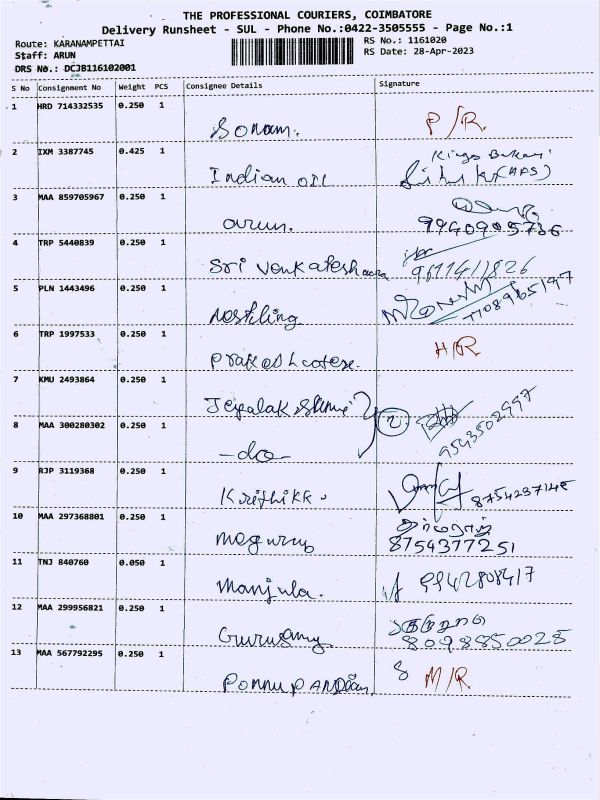 THE PROFESSIONAL COURIERS, COIMBATORE
Delivery Runsheet - SUL - Phone No.:0422-3505555 - Page No.:1
Route: KARANAMPETTAI RS No.: 1161020
Staff: ARUN RS Date: 28-Apr-2023
DRS No.: DCJB116102001
S No Consignment No Weight PCS Consignee Details Signature
1 HRD 714332535 0.250 1
Sonam. P/R.
2 IXM 3387745 0.425 1
Indian OIL (HPS)
3 MAA 859705967 0.250 1
arun. 9940905736
4 TRP 5440839 0.250 1
Sri Venkateshwara
5 PLN 1443496 0.250 1
Nestling
6 TRP 1997533 0.250 1
H/R
7 KMU 2493864 0.250 1
8 MAA 300280302 0.250 1
-do- 2 9543502997
9 RJP 3119368 0.250 1
10 MAA 297368801 0.250 1
8754377251
11 TNJ 840760 0.050 1
Manjula. 9942808417
12 MAA 299956821 0.250 1
8098850028
13 MAA 567792295 0.250 1
PONNU PANDIan M/R.